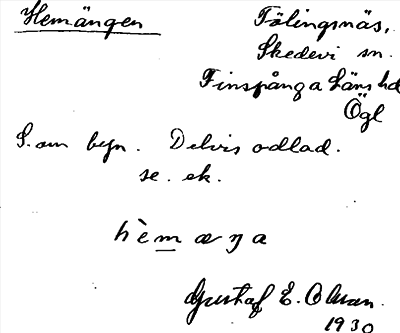 Hemängen
Fålingsnäs,
Skedevi sn.
Finspånga Läns hd
Ögl
S. om byn. Delvis odlad.
se. ek.
hèmæŋa
Gustaf E. Olsson.
1930